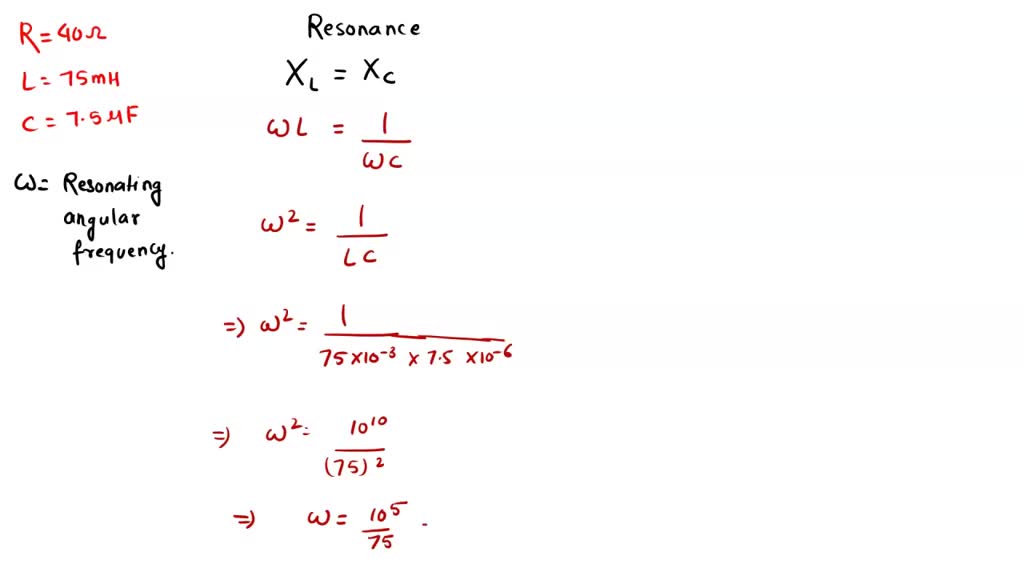 R = 40Ω
L = 75mH
C = 7.5μF
ω = Resonating
angular
frequency.
Resonance
X_L = X_C
ωL = 1/ωC
ω² = 1/LC
=) ω² = 1/75×10⁻³ × 7.5 ×10⁻⁶
=) ω² = 10¹⁰/(75)²
=) ω = 10⁵/75 .